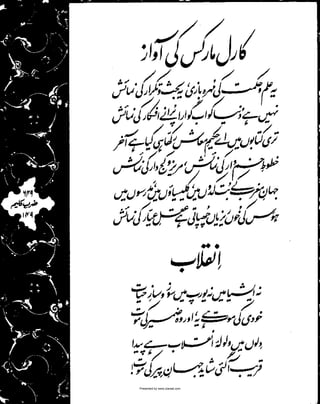 کارل مارکس کی آواز
یہ علم و حکمت کی مہرہ بازی یہ بحث و تکرار کی نمائش
نہیں ہے دنیا کو اب گوارا پرانے افکار کی نمائش
تری کتابوں میں اے حکیم معاش رکھا ہی کیا ہے آخر
خطوط خم دار کی نمائش مریز و کج دار کی نمائش
جہان مغرب کے بت کدوں میں کلیساؤں میں مدرسوں میں
ہوس کی خوں ریزیاں چھپاتی ہے عقل عیار کی نمائش
انقلاب
نہ ایشیا میں نہ یورپ میں سوز و ساز حیات
خودی کی موت ہے یہ اور وہ ضمیر کی موت
دلوں میں ولولۂ انقلاب ہے پیدا
قریب آ گئی شاید جہان پیر کی موت!
۶۳۹
ضرب کلیم
۱۳۹